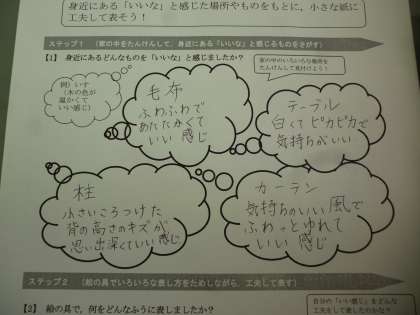 身近にある「いいな」と感じた場所やものをもとに、小さな紙に
工夫して表そう！
ステップ１ （家の中をたんけんして、身近にある「いいな」と感じるものをさがす）
【１】 身近にあるどんなものを「いいな」と感じましたか？
家の中のいろいろな場所を
たんけんして見付けよう！
例）いす
（木の色が
温かくて
いい感じ）
毛布
ふわふわで
あたたかくて
いい感じ
テーブル
白くてピカピカで
気持ちがいい
柱
小さいころつけた
背の高さのキズが
思い出深くていい感じ
カーテン
気持ちのいい風で
ふわっとゆれて
いい感じ
ステップ２ （絵の具でいろいろな表し方をためしながら、工夫して表す）
【２】 絵の具で、何をどんなふうに表しましたか？
自分の「いい感じ」をどんな
工夫をして表したのかな？